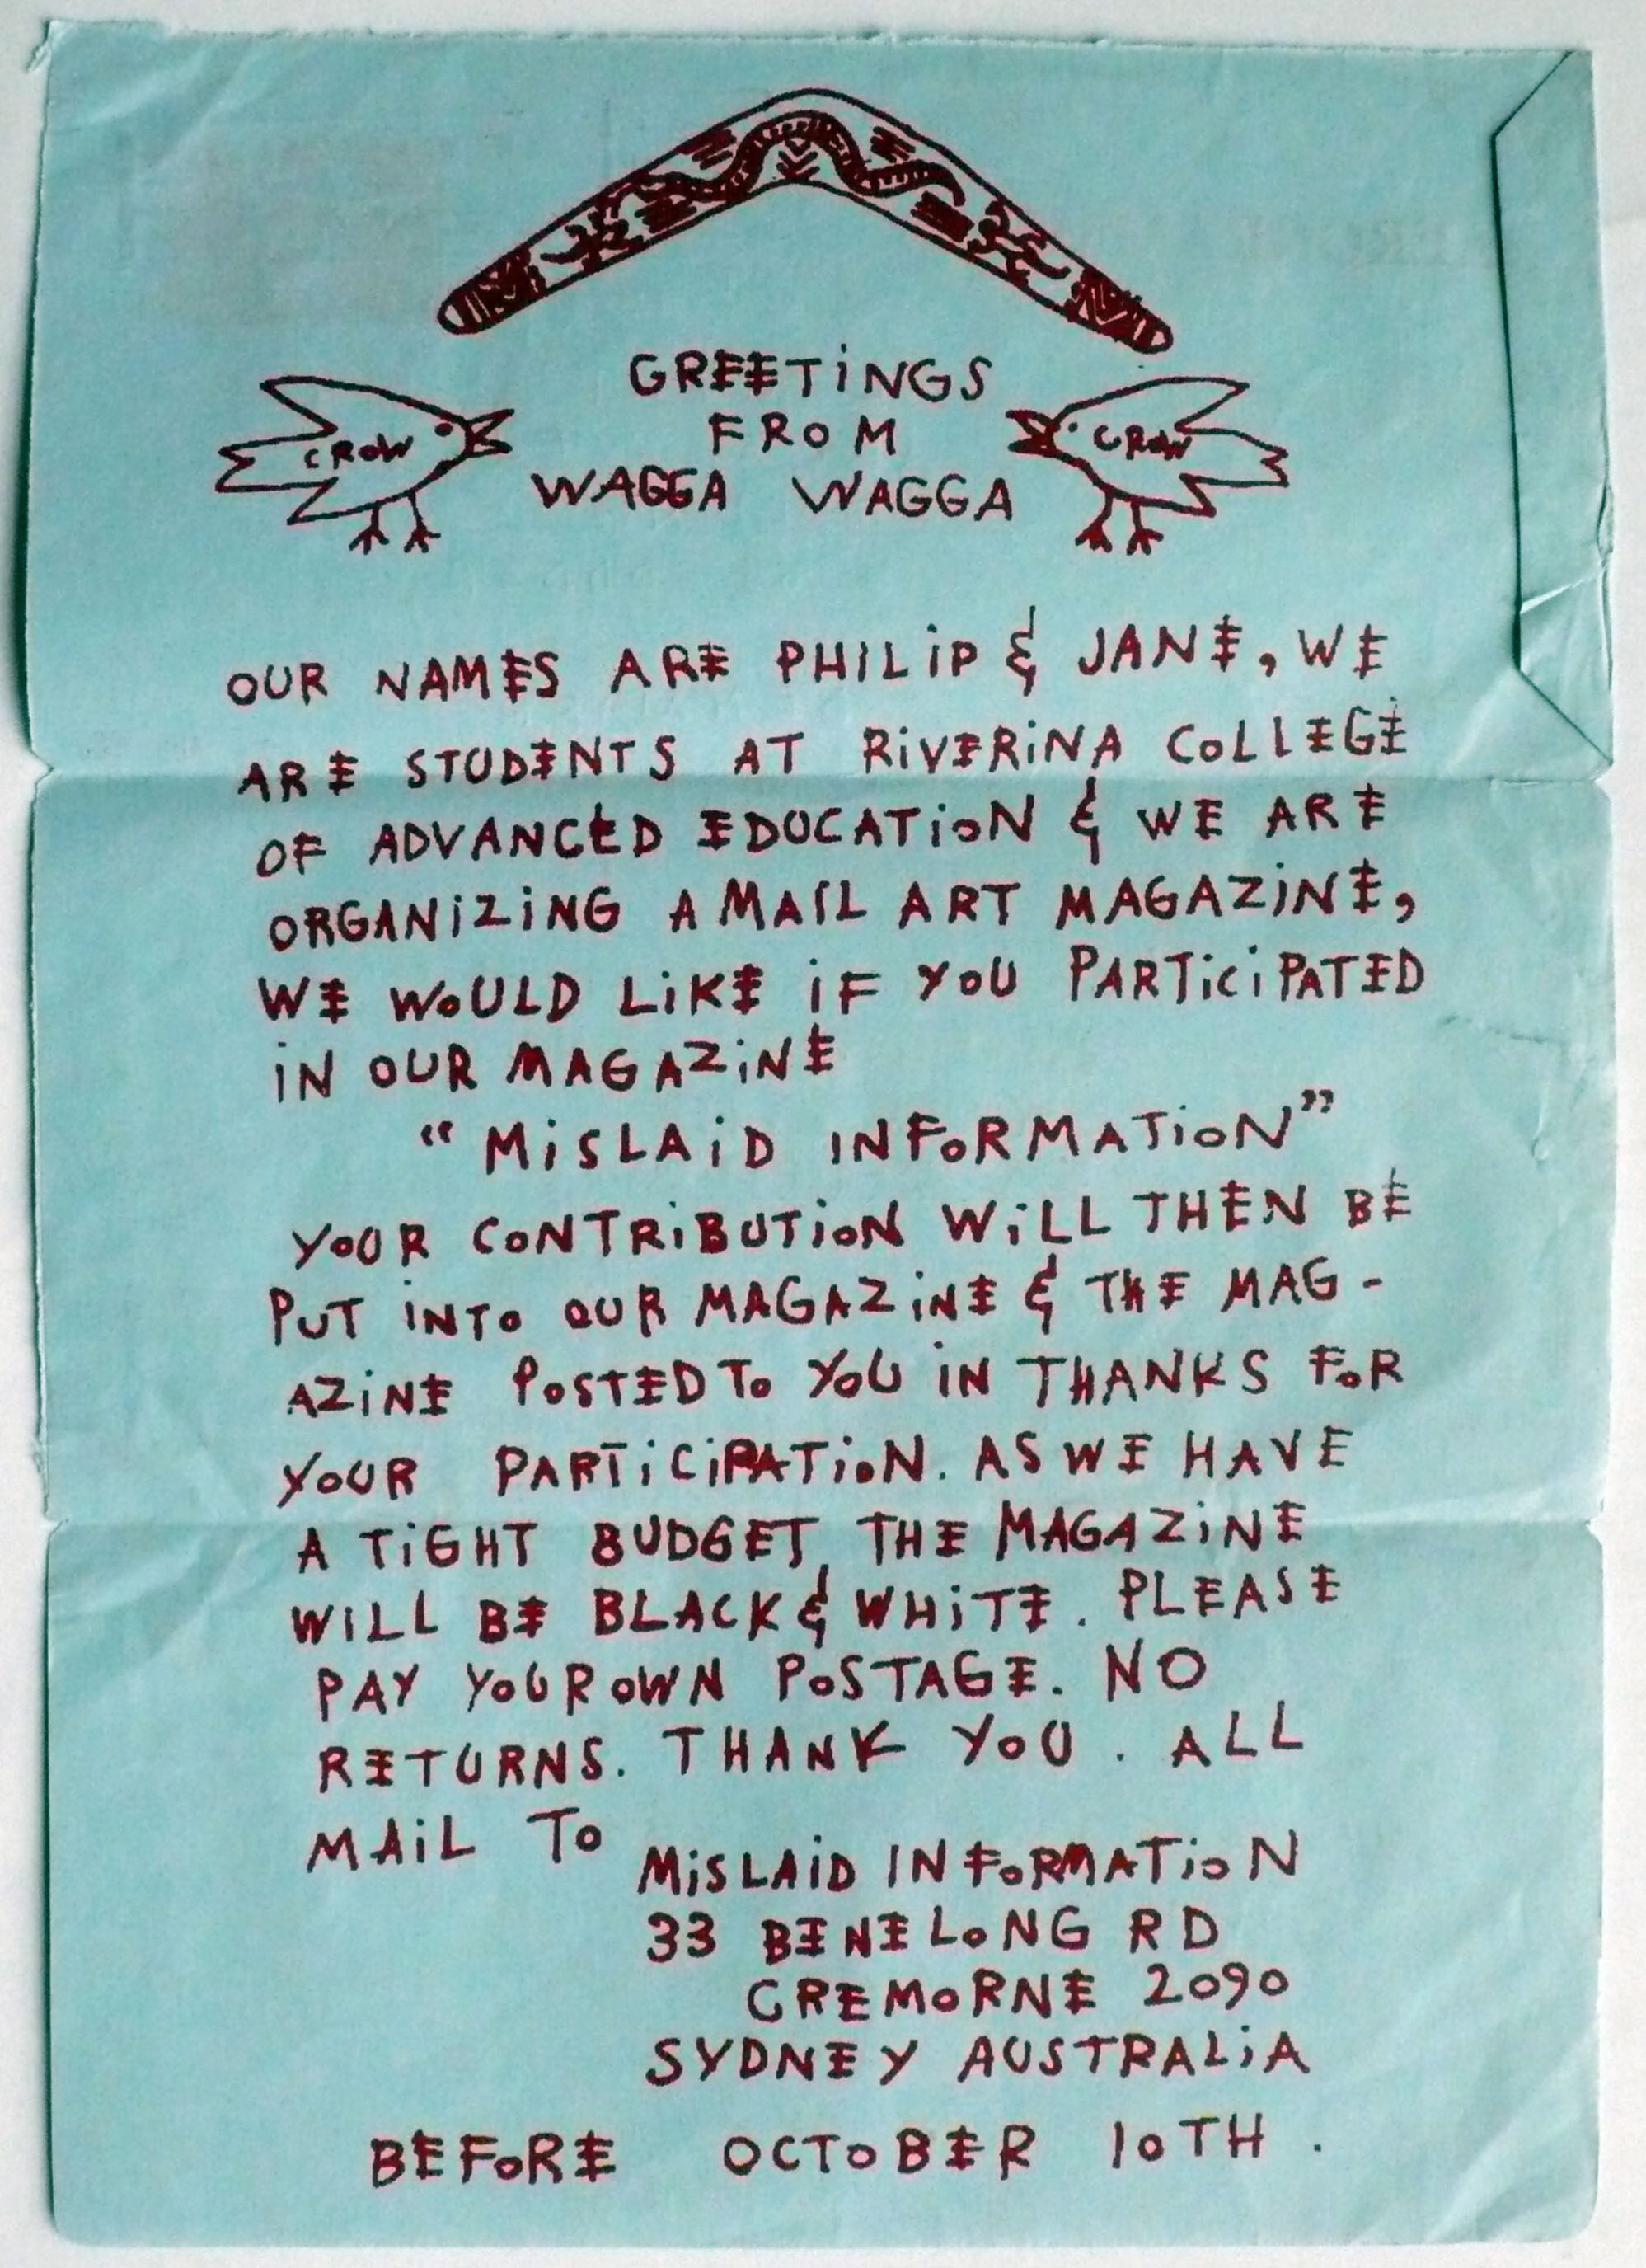 GREETiNGS
FROM
CROW WAGGA WAGGA CROW
OUR NAMES ARE PHILiP & JANE, WE
ARE STUDENTS AT RiVERiNA COLLEGE
OF ADVANCED EDUCATiON & WE ARE
ORGANiZiNG A MAIL ART MAGAZiNE,
WE WOULD LiKE iF YOU PARTiCiPATED
iN OUR MAGAZiNE
“MiSLAiD INFORMATiON”
YOUR CONTRiBUTiON WiLL THEN BE
PUT iNTO OUR MAGAZiNE & THE MAG-
AZiNE POSTED TO YOU iN THANKS FOR
YOUR PARTiCiPATiON. AS WE HAVE
A TiGHT BUDGET, THE MAGAZiNE
WILL BE BLACK & WHiTE. PLEASE
PAY YOUR OWN POSTAGE. NO
RETURNS. THANK YOU. ALL
MAiL TO
MiSLAiD INFORMATiON
33 BENELONG RD
CREMORNE 2090
SYDNEY AUSTRALiA
BEFORE OCTOBER 10TH.